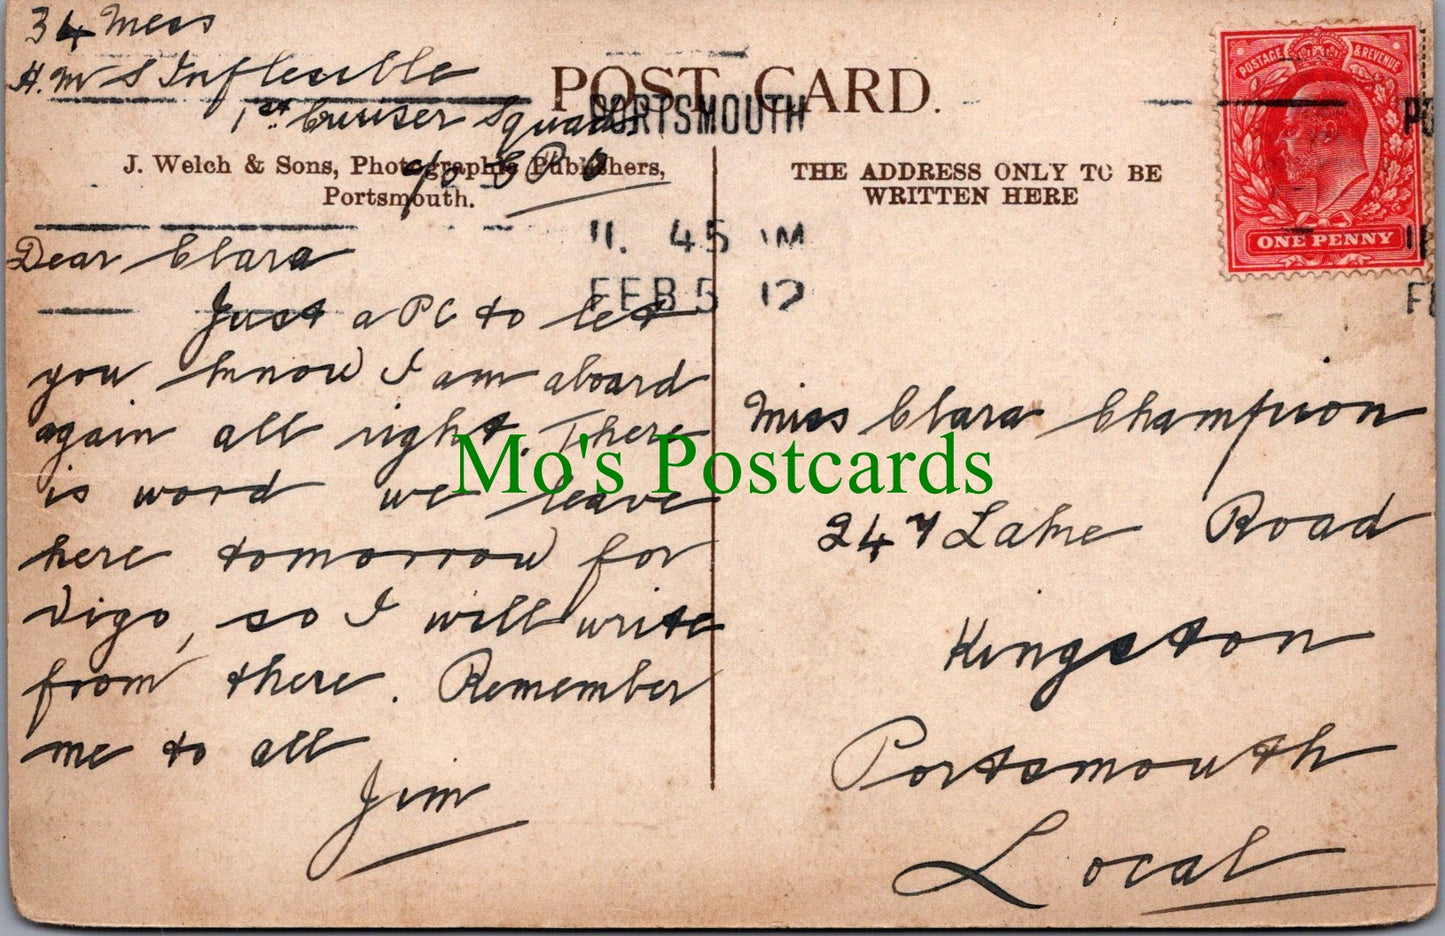 34 Mess
H.M S Inflexible
1st Cruiser Squadn
c/o G P O
POST CARD.
J. Welch & Sons, Photographic Publishers,
Portsmouth.
PORTSMOUTH
11. 45 AM
FEB 5 12
Dear Clara
Just a PC to let
you know I am aboard
again all right. There
is word we leave
here tomorrow for
Vigo, so I will write
from there. Remember
me to all
Jim
THE ADDRESS ONLY TO BE
WRITTEN HERE
POSTAGE & REVENUE
ONE PENNY
Miss Clara Champion
247 Lake Road
Kingston
Portsmouth
Local
Mo's Postcards